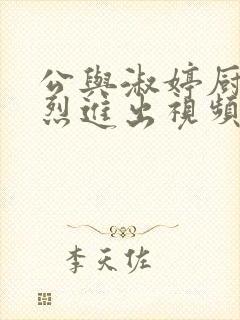 公與淑婷厨
烈進出視頻
李天佐